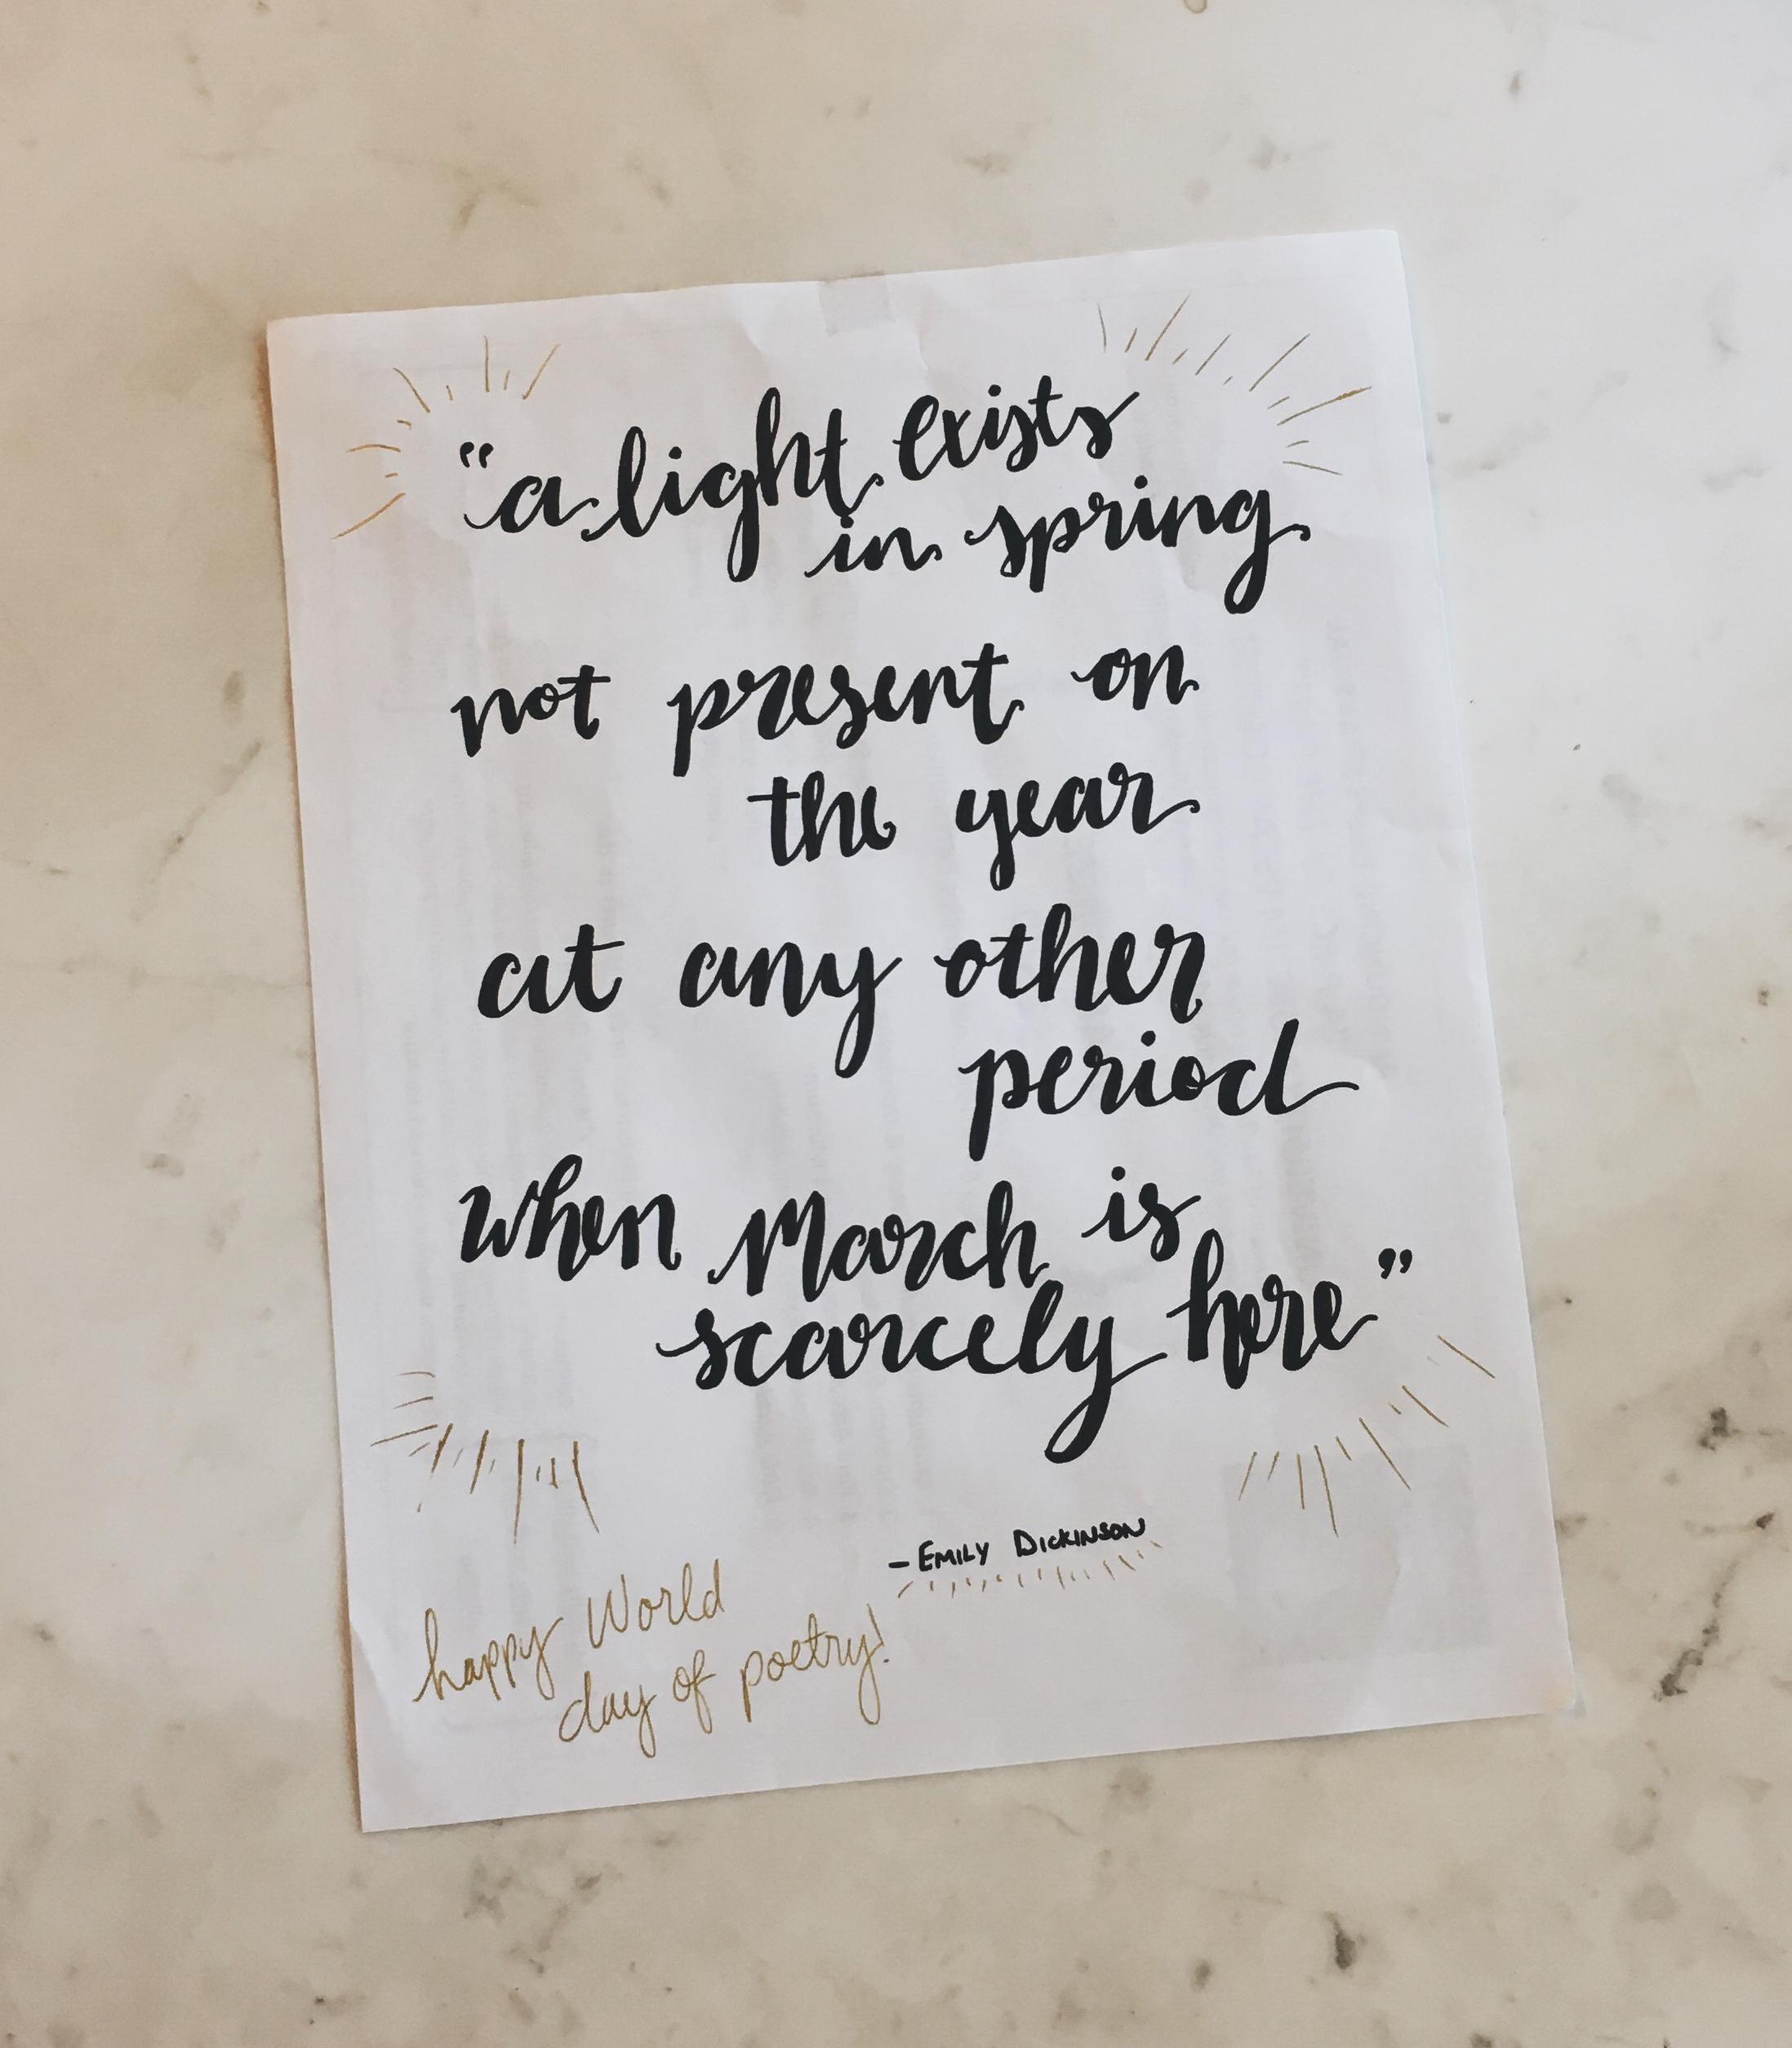 "a light exists
in spring
not present on
the year
at any other
period
when March is
scarcely here"
- EMILY DICKINSON
happy World
day of poetry!